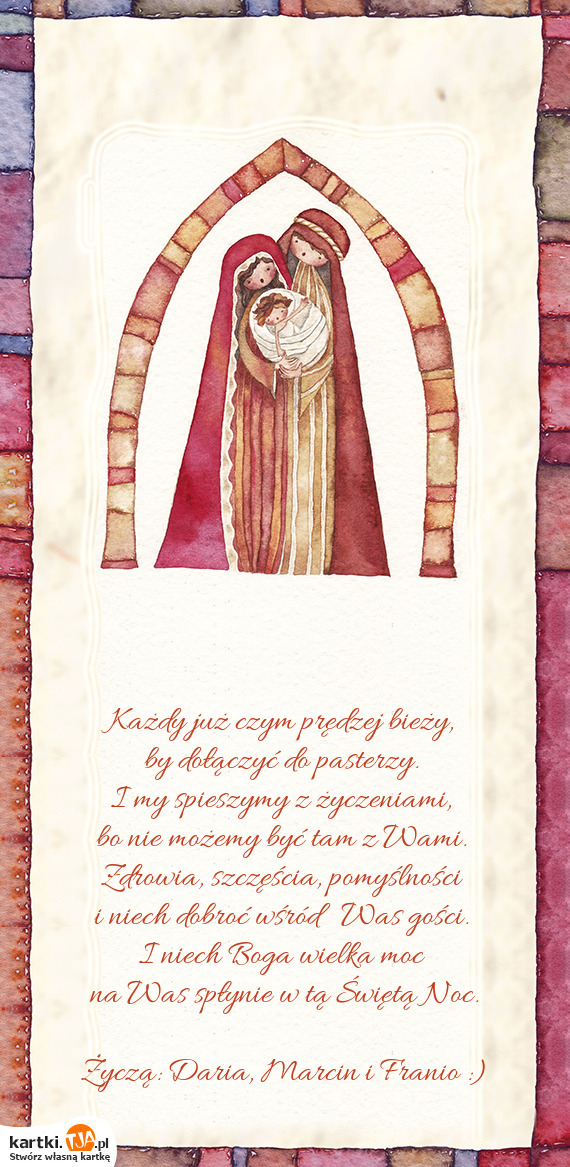 Każdy już czym prędzej bieży,
by dołączyć do pasterzy.
I my spieszymy z życzeniami,
bo nie możemy być tam z Wami.
Zdrowia, szczęścia, pomyślności
i niech dobroć wśród Was gości.
I niech Boga wielka moc
na Was spłynie w tą Świętą Noc.
Życzą: Daria, Marcin i Franio :)
kartki.TJA.pl
Stwórz własną kartkę